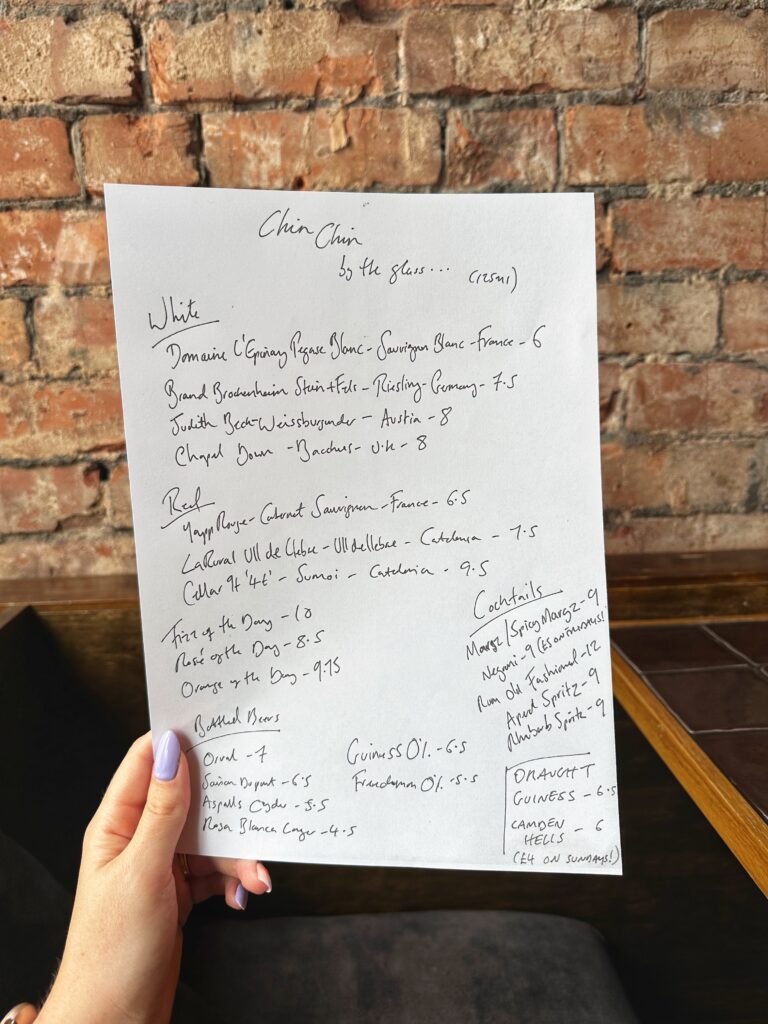 Chin Chin
by the glass... (125ml)
White
Domaine L'Epinay Pegase Blanc - Sauvignon Blanc - France - 6
Brand Brochenheim Stein+Fels - Riesling - Germany - 7.5
Judith Beck - Weissburgunder - Austia - 8
Chapel Down - Bacchus - U.K - 8
Red
Yapp Rouge - Cabernet Sauvignon - France - 6.5
LaRural Ull de Llebre - Ull de Llebre - Catalonia - 7.5
Cellar 9+ '4t' - Sumoi - Catalonia - 9.5
Fizz of the Day - 10
Rosé of the Day - 8.5
Orange of the Day - 9.75
Cocktails
Margz/Spicy Margz - 9
Negroni - 9 (£5 ON THURSDAYS!)
Rum Old Fashioned - 12
Aperol Spritz - 9
Rhubarb Spritz - 9
Bottled Beers
Orval - 7
Saison Dupont - 6.5
Aspalls Cyder - 5.5
Rosa Blanca Lager - 4.5
Guiness 0% - 6.5
Freedamm 0% - 5.5
DRAUGHT
GUINESS - 6.5
CAMDEN
HELLS - 6
(£4 ON SUNDAYS!)